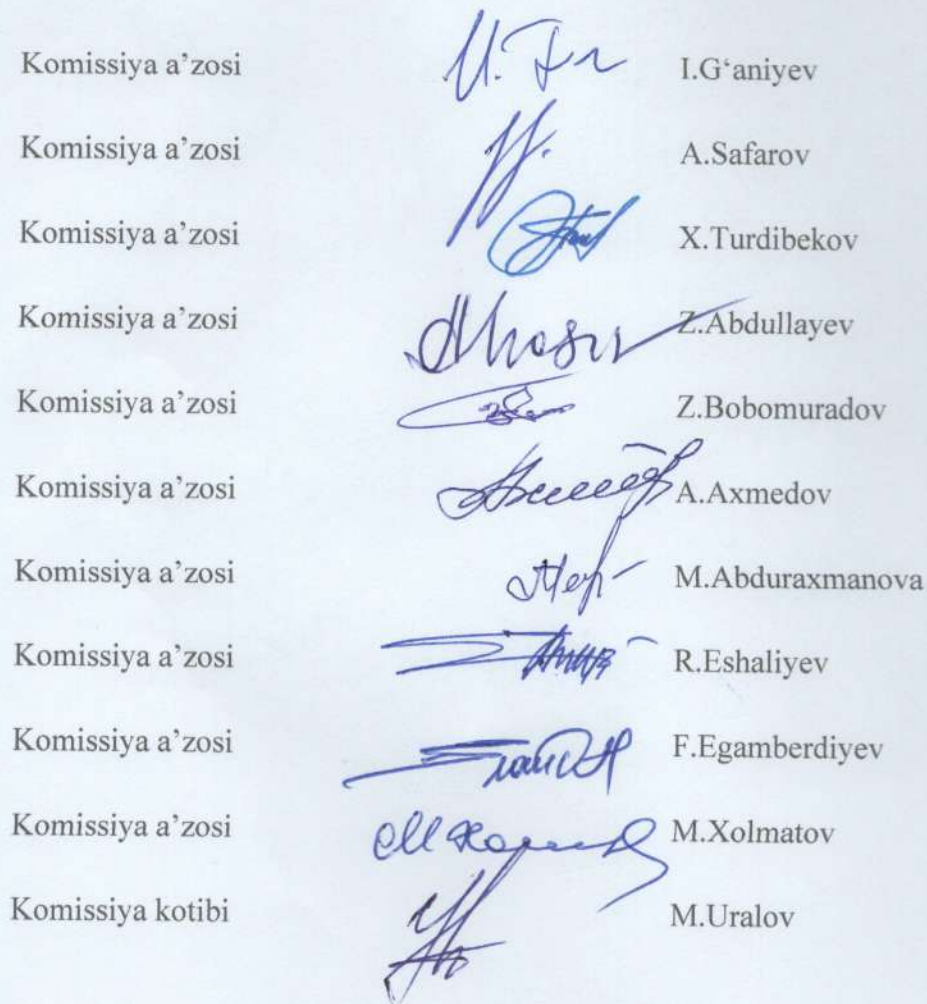 Komissiya a’zosi I.G‘aniyev
Komissiya a’zosi A.Safarov
Komissiya a’zosi X.Turdibekov
Komissiya a’zosi Z.Abdullayev
Komissiya a’zosi Z.Bobomuradov
Komissiya a’zosi A.Axmedov
Komissiya a’zosi M.Abduraxmanova
Komissiya a’zosi R.Eshaliyev
Komissiya a’zosi F.Egamberdiyev
Komissiya a’zosi M.Xolmatov
Komissiya kotibi M.Uralov